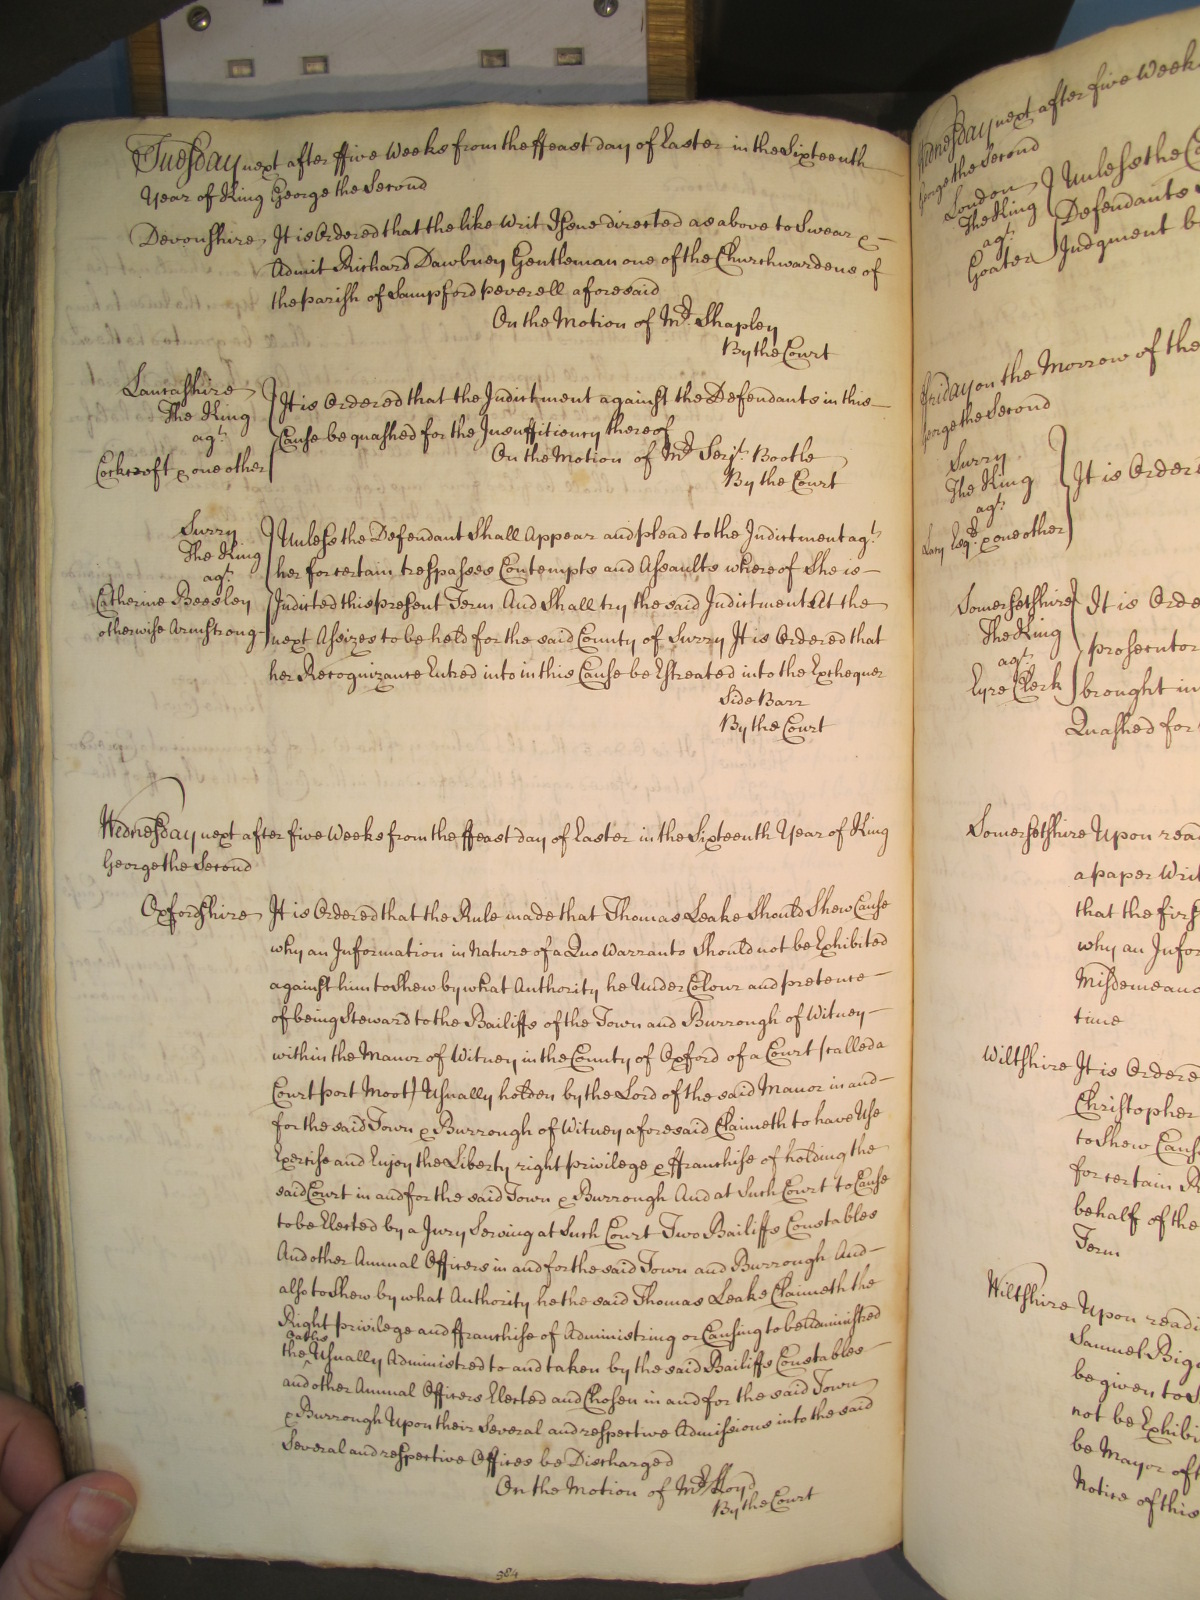 Tuesday next after ffive Weeks from the ffeast day of Easter in the Sixteenth
Year of King George the Second
Devonshire It is Ordered that the like Writ Issue directed as above to Swear &
Admit Richard Dawbney Gentleman one of the Churchwardens of
the parish of Sampford peverell aforesaid
On the Motion of Mr. Shapley
By the Court
Lancashire
The King
agt.
Cockcroft & one other
It is Ordered that the Indictment against the Defendants in this
Cause be quashed for the Insufficiency thereof
On the Motion of Mr Serjt. Bootle
By the Court
Surry
The King
agt.
Catherine Beesley
otherwise Armstrong
Unless the Defendant Shall Appear and plead to the Indictment agt.
her for certain trespasses Contempts and Assaults whereof She is
Indicted this present Term And Shall try the said Indictment At the
next Assizes to be held for the said County of Surry It is Ordered that
her Recognizance Entred into in this Cause be Estreated into the Exchequer
Side Barr
By the Court
Wednesday next after five Weeks from the ffeast day of Easter in the Sixteenth Year of King
George the Second
Oxfordshire It is Ordered that the Rule made that Thomas Leake Should Shew Cause
why an Information in Nature of a Quo Warranto Should not be Exhibited
against him to Shew by what Authority he Under Colour and pretence
of being Steward to the Bailiffs of the Town and Burrough of Witney
within the Manor of Witney in the County of Oxford of a Court (called a
Court port Moot) Usually holden by the Lord of the said Manor in and
for the said Town & Burrough of Witney aforesaid Claimeth to have Use
Exercise and Enjoy the Liberty right privilege & ffranchise of holding the
said Court in and for the said Town & Burrough And at Such Court to Cause
to be Elected by a Jury Serving at Such Court Two Bailiffs Constables
And other Annual Officers in and for the said Town and Burrough And
also to Shew by what Authority he the said Thomas Leake Claimeth the
Right privilege and ffranchise of Administring or Causing to be Administred
Oaths
the Usually Administred to and taken by the said Bailiffs Constables
and other Annual Officers Elected and Chosen in and for the said Town
& Burrough Upon their Several and respective Admissions into the said
Several and respective Offices be Discharged
On the Motion of Mr Lloyd
By the Court
384
Wednesday next after five Week
George the Second
London
The King
agt.
Goater
Unless the
Defendants
Judgment b
Friday on the Morrow of the
George the Second
Surry
The King
agt.
Esqr. & one other
It is Order
Somersetshire
The King
agt.
Eyre Clerk
It is Orde
prosecutor
brought in
Quashed for
Somersetshire Upon read
a paper Writ
that the first
why an Infor
Misdemeano
time
Wiltshire It is Ordere
Christopher
to Shew Caus
for certain
behalf of the
Term
Wiltshire Upon readi
Samuel Bigg
be given to S
not be Exhibi
be Mayor of t
Notice of this